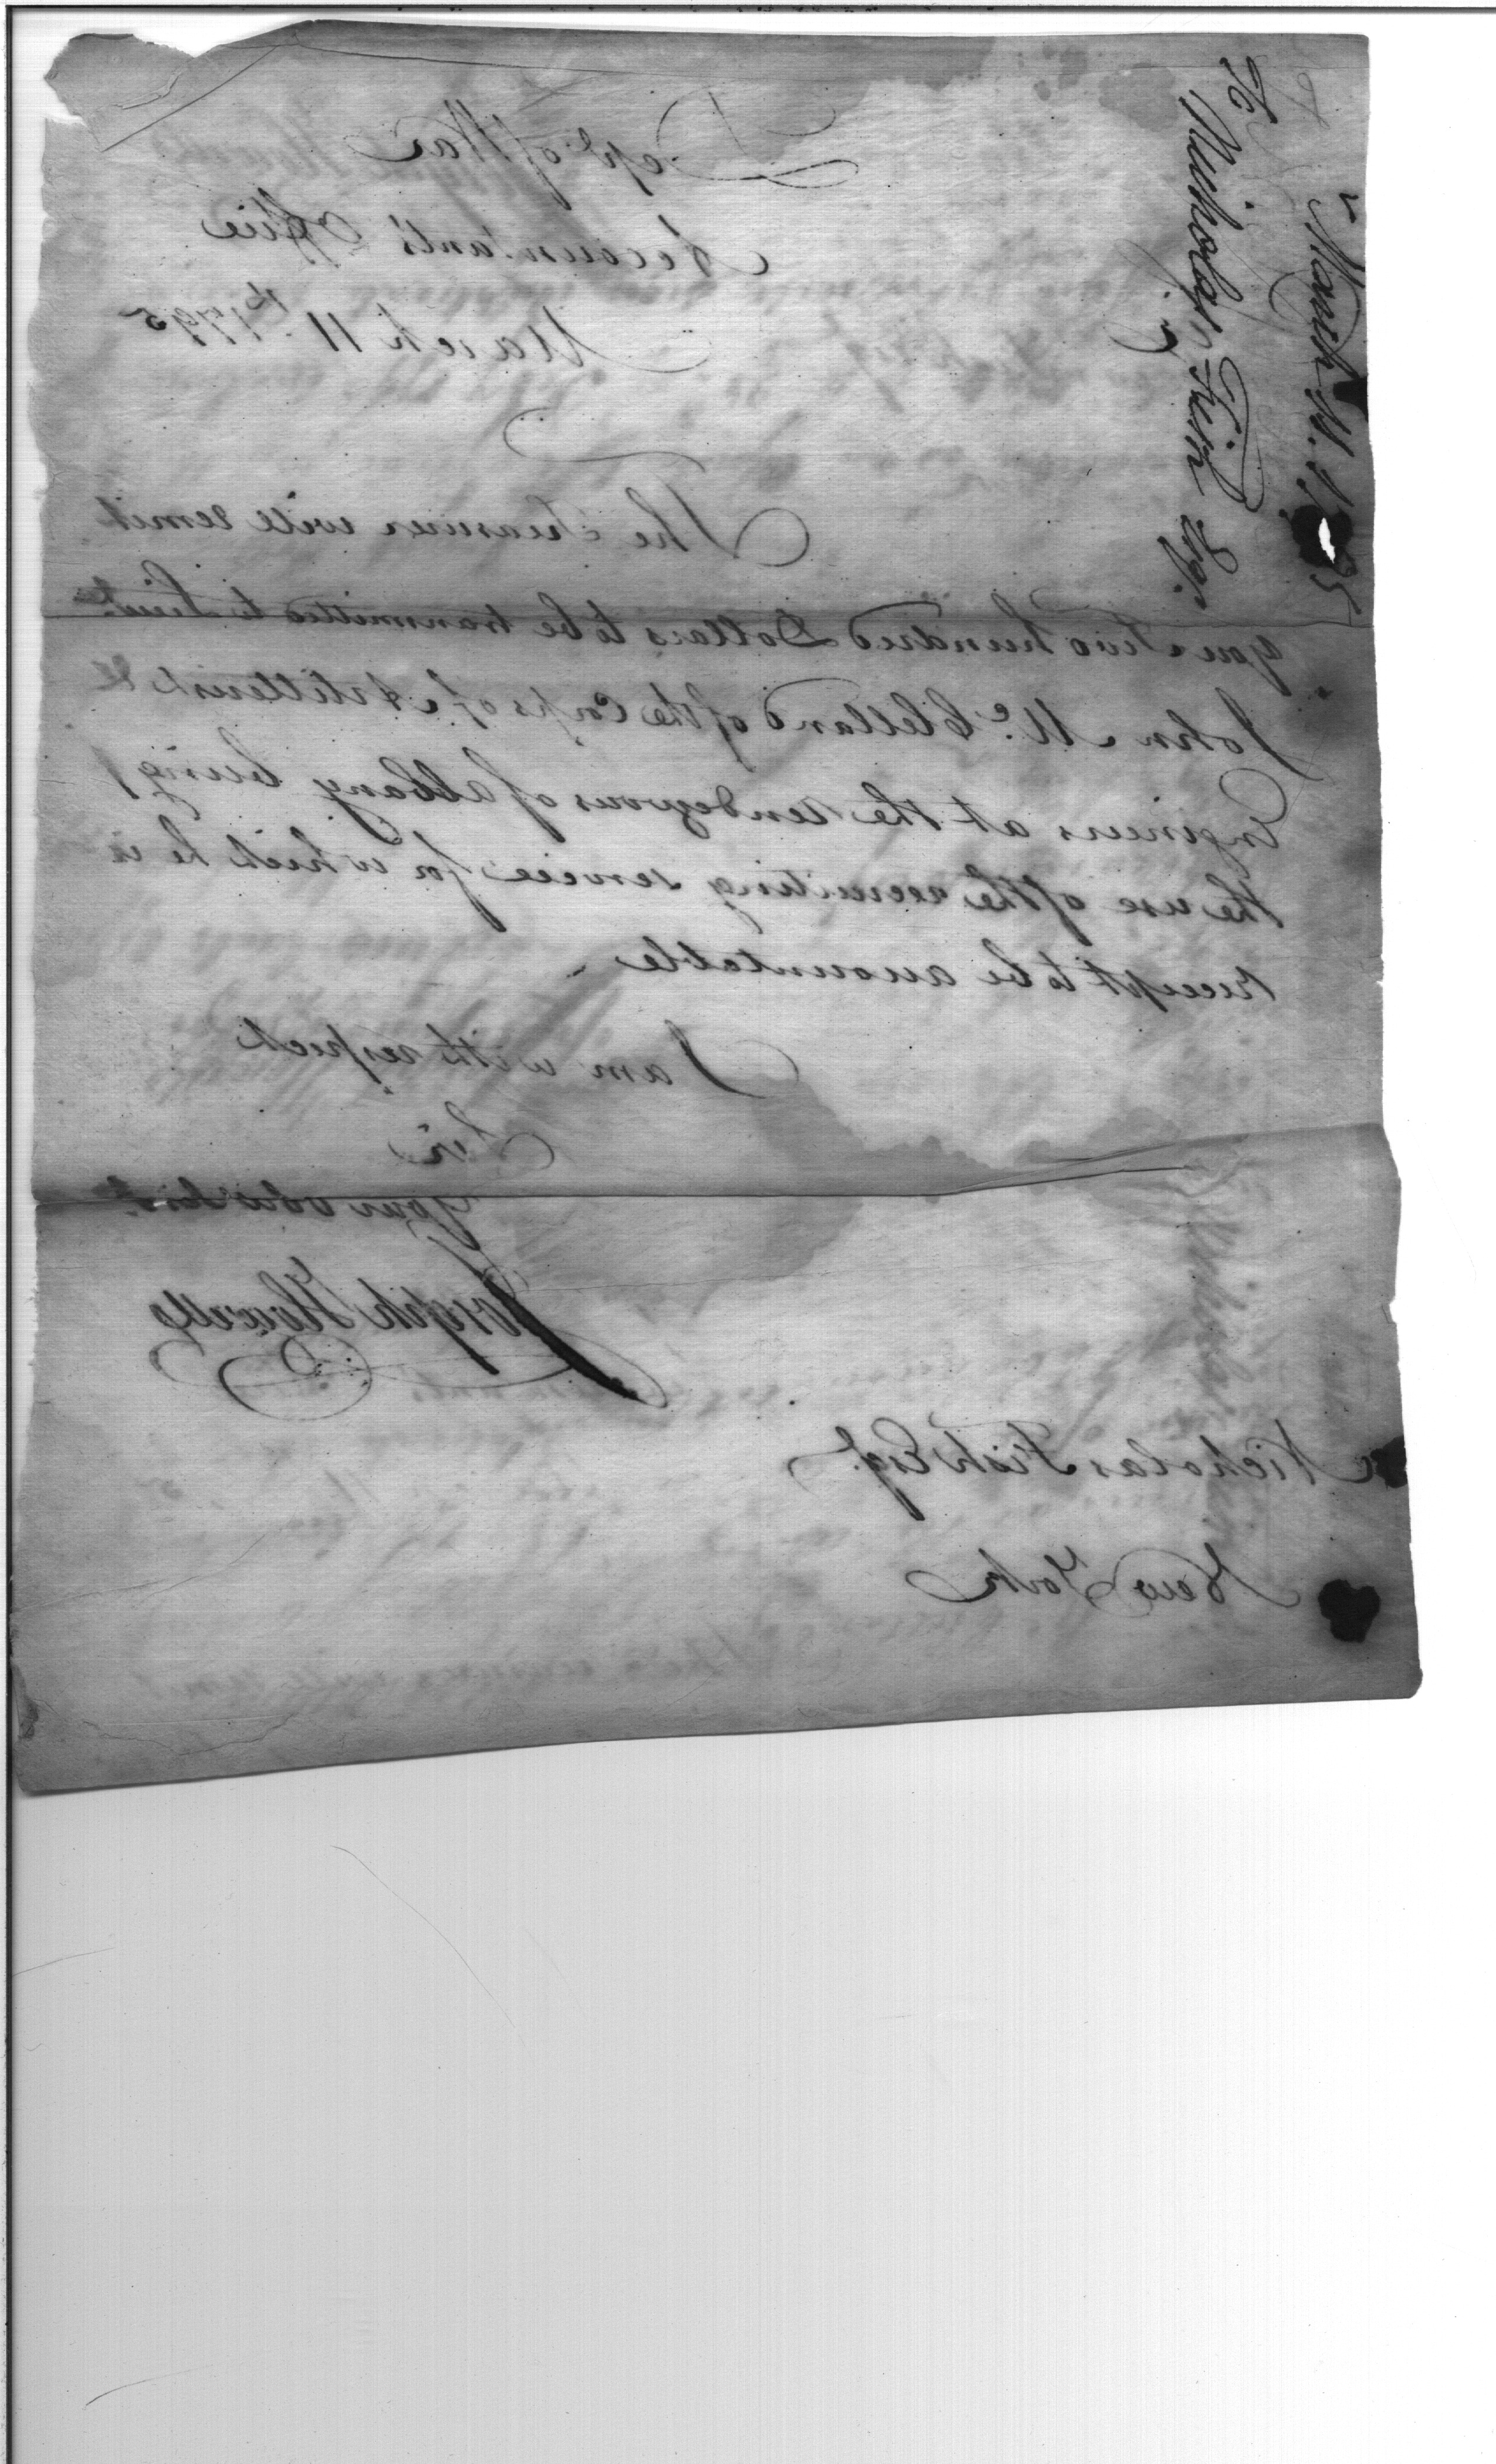 Dep.t of War
Accountants Office
March 11.th 1795
Sir
The Treasurer will remit
you Two hundred Dollars to be transmitted to Lieut.
John Mc.Clelland of the Corps of Artillerists &
Engineers at the rendezvous of Albany being
the use of the recruiting service for which he is
receipt to be accountable
I am with respect
Sir
Your obd. Servt.
Joseph Howell
Nicholas Fish Esq.
New York
March 11. 1795
To Nicholas Fish Esqr.